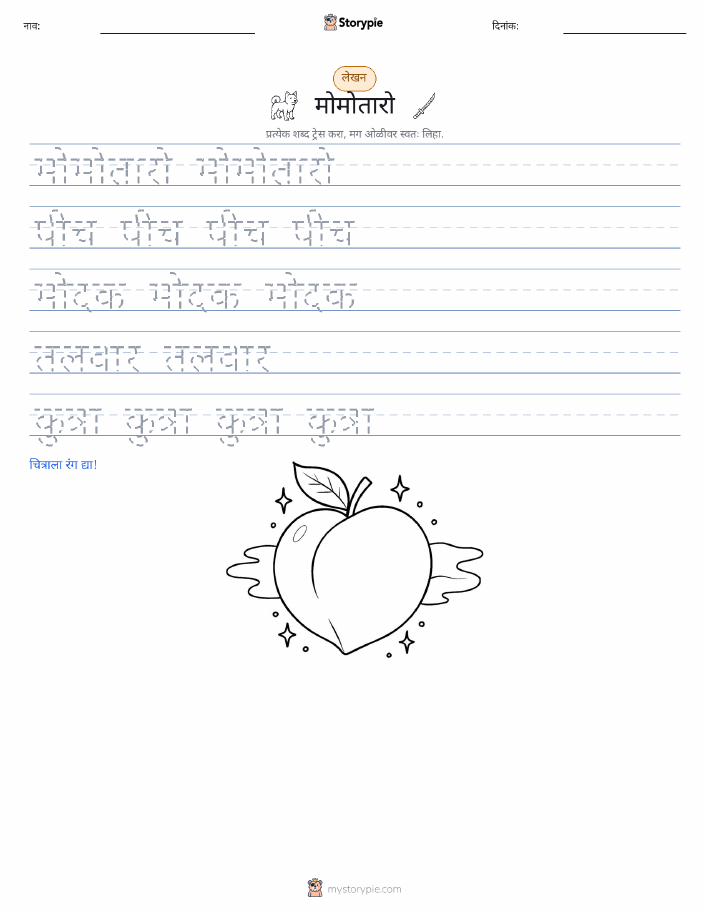 नाव:
Storypie
दिनांक:
लेखन
मोमोतारो
प्रत्येक शब्द ट्रेस करा, मग ओळीवर स्वतः लिहा.
मोमोतारो मोमोतारो
पीच पीच पीच पीच
मोदक मोदक मोदक
तलवार तलवार
कुत्रा कुत्रा कुत्रा कुत्रा
चित्राला रंग द्या!
mystorypie.com